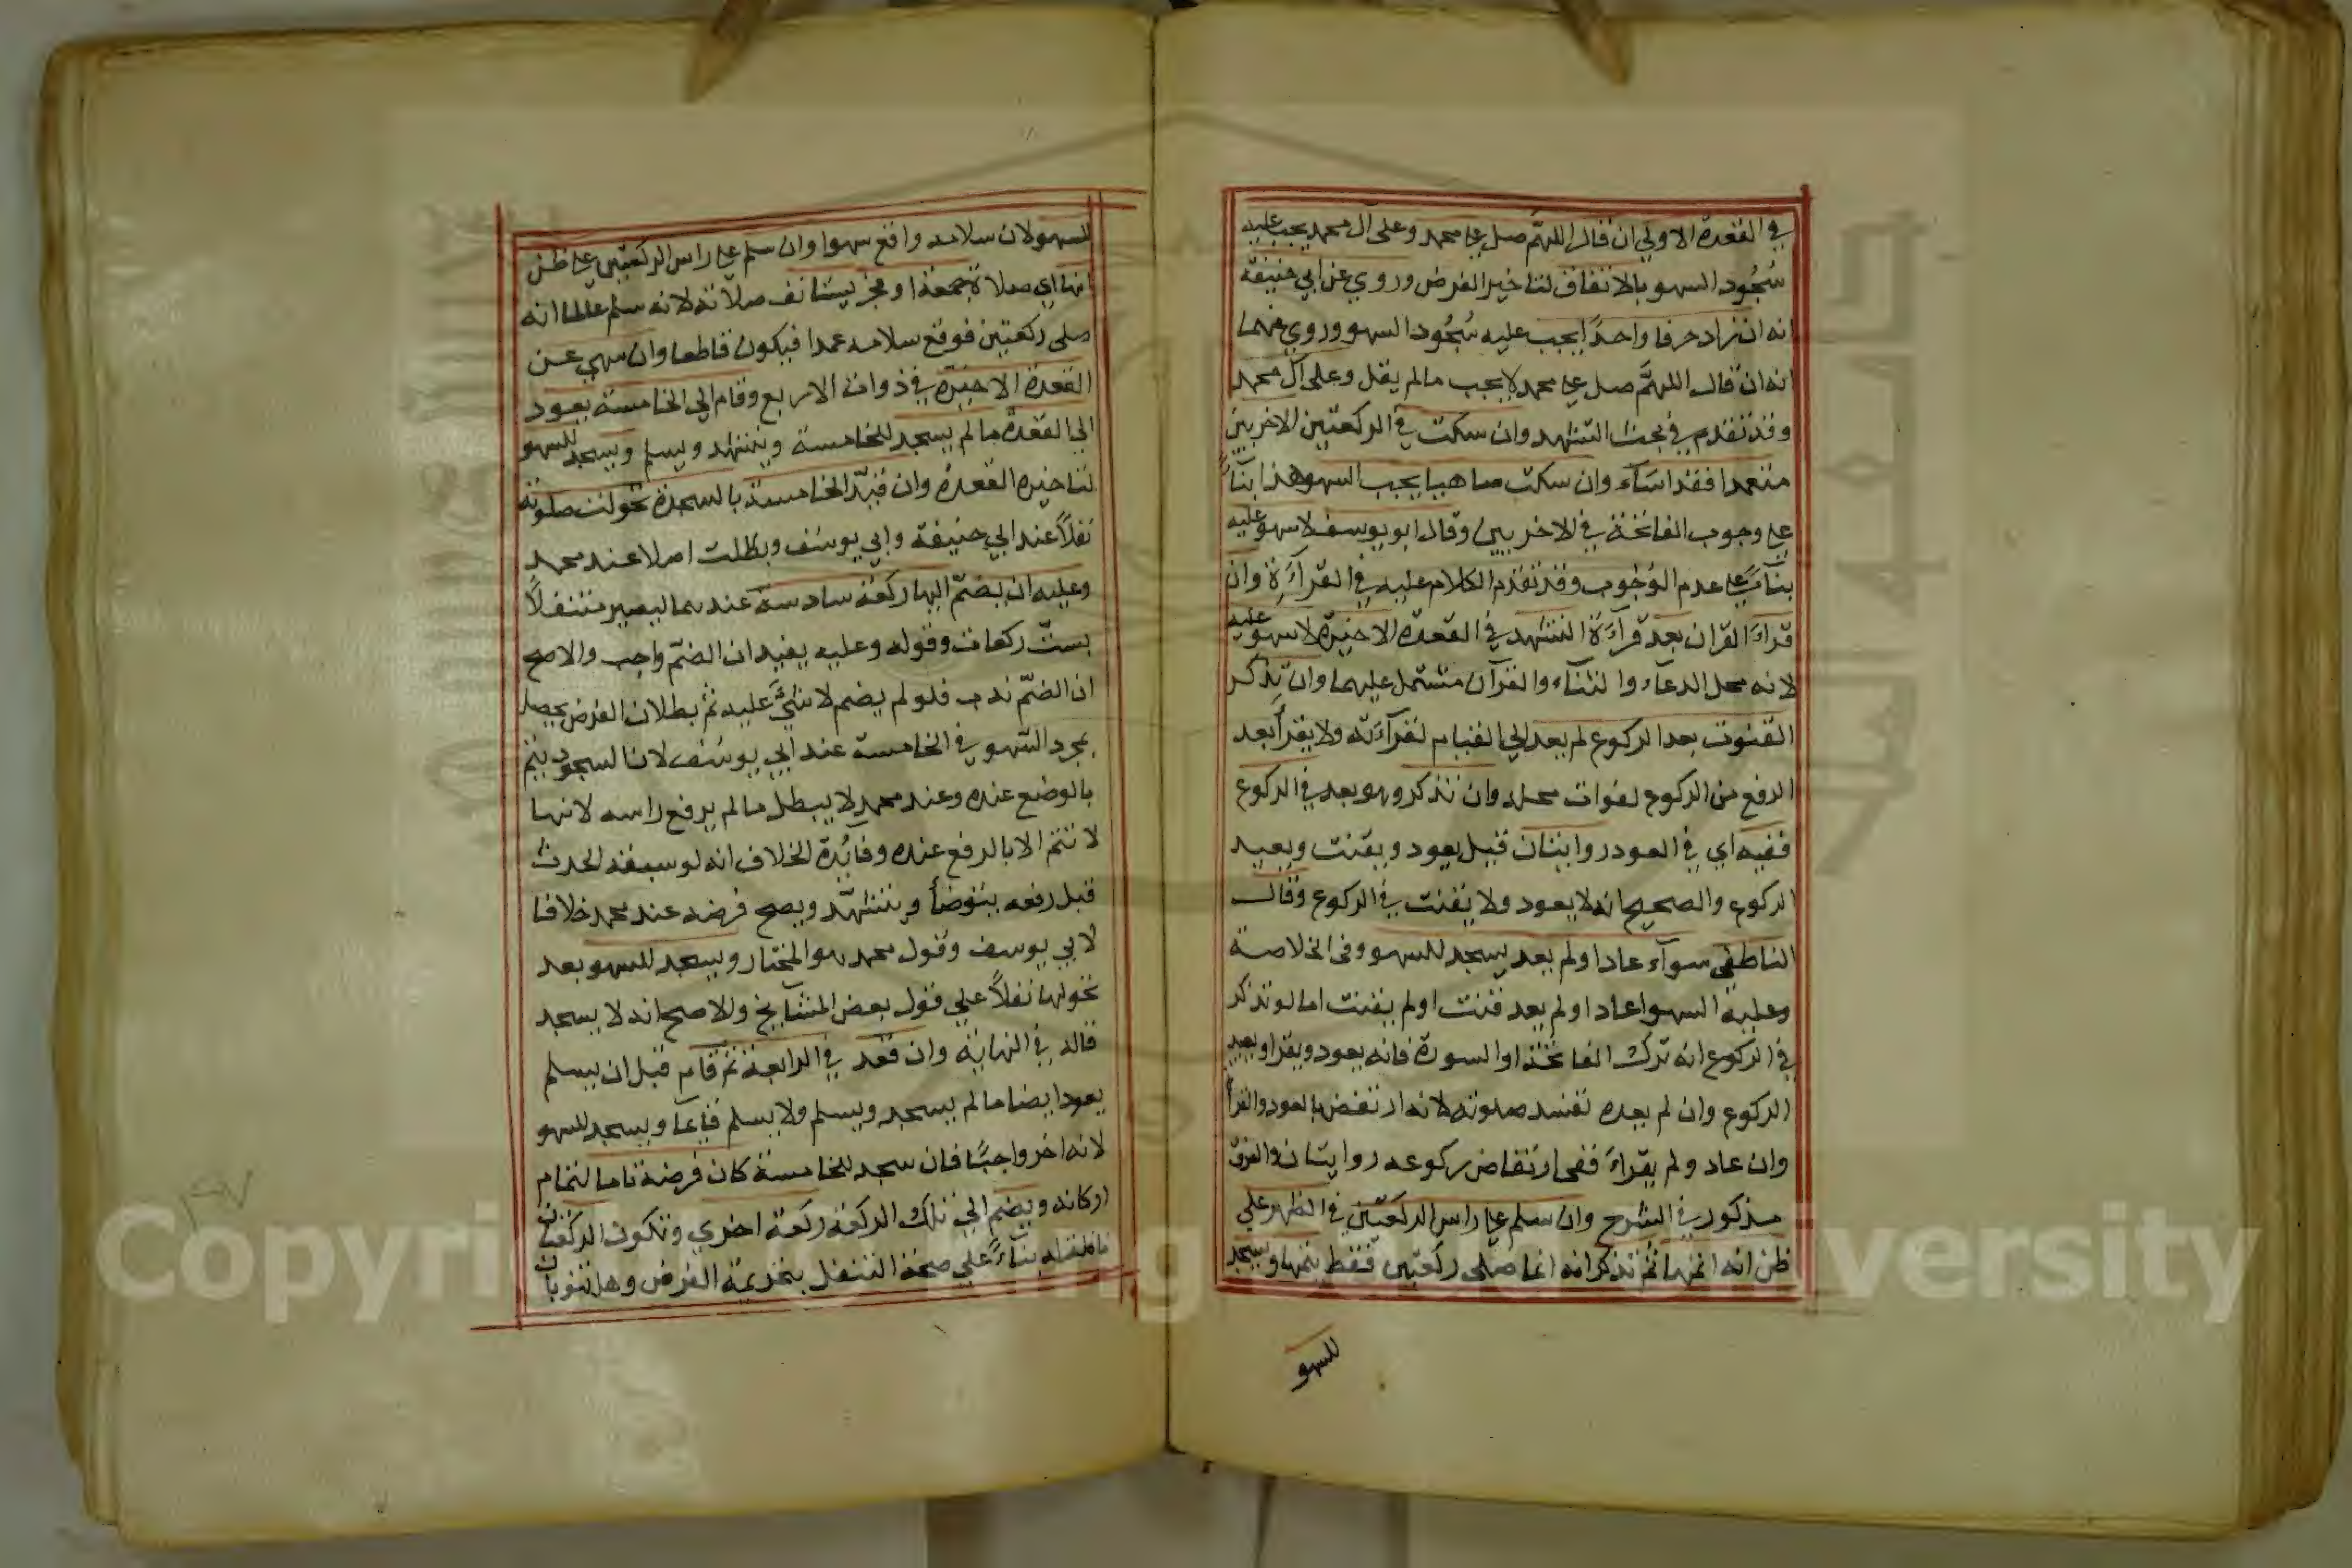 في القعدة الاولي ان قال اللهم صل علي محمد وعلي ال محمد يجب عليه
سُجُود السهو بالاتفاق لتاخير الفرض وروي عن ابي حنيفة
انه ان زاد حرفا واحدًا يجب عليه سُجُود السهو وروي عنهما
انه ان قال اللهمَّ صل علي محمد لا يجب مالم يقل وعلي آل محمد
وقد تقدم في بحث التشهد وان سكت في الركعتين الاخريين
متعمدا فقد اسَآء وان سكت ساهيا يجب السهو هذا بنآءً
علي وجوب الفاتحة في الاخريين وقال ابو يوسف لا سهو عليه
بنآءً علي عدم الوُجُوب وقد تقدم الكلام عليه في القرآءَة وان
قراءَ القران بعد قرآءَة التشهد في القعدة الاخيرة لا سهو عليه
لانه محل الدعآء والثنآء والقرآن مشتمل عليهما وان تذكر
القنوت بعد الركوع لم يعد الي القيام لقرآءته ولا يقرأ بعد
الرفع من الركوع لفوات محله وان تذكر وهو بعد في الركوع
ففيه اي في العود روايتان قيل يعود ويقنت ويعيد
الركوع والصحيح انه لا يعود ولا يقنت في الركوع وقال
الناطفي سوآء عاد او لم يعد يسجد للسهو وفي الخلاصة
وعليه السهو اعاد او لم يعد قنت او لم يقنت اما لو تذكر
في الركوع انه ترك الفاتحة او السورة فانه يعود ويقرا ويعيد
الركوع وان لم يعده تفسد صلوته لانه ارتفض بالعود والقرأ
وان عاد ولم يقراءَ ففي ارتفاض ركوعه روايتان والفرق
مذكور في الشرح وان سلم علي راس الركعتين في الظهر علي
ظن انه اتمها ثم تذكر انه انما صلي ركعتين فقط يتمها ويسجد
للسهو
للسهو لان سلامه واقع سهوا وان سلم علي راس الركعتين علي ظن
انها اي صلاة جمعة او فجر يستانف صلاته لانه سلم عالما انه
صلي ركعتين فوقع سلامه عمدا فيكون قاطعا وان سهي عن
القعدة الاخيرة في ذوات الاربع وقام الي الخامسة يعود
الي القعدة مالم يسجد للخامسة ويتشهد ويسلم ويسجد للسهو
لتاخيره القعدة وان قيّد الخامسة بالسجدة تحولت صلوته
نفلاً عند ابي حنيفة وابي يوسف وبطلت اصلا عند محمد
وعليه ان يضمّ اليها ركعة سادسة عندهما ليصير متنفلاً
بستّ ركعات وقوله وعليه يفيد ان الضمّ واجب والاصح
ان الضمّ ندب فلو لم يضم لا شئَ عليه ثم بطلان الفرض يحصل
بمجرد السهو في الخامسة عند ابي يوسف لان السجود يتم
بالوضع عنده وعند محمد لا يبطل مالم يرفع راسه لانها
لا تتم الا بالرفع عنده وفائدة الخلاف انه لو سبقه الحدث
قبل رفعه يتوضأ ويتشهّد ويصح فرضه عند محمد خلافا
لابي يوسف وقول محمد هو المختار ويسجد للسهو بعد
تحولها نفلاً علي قول بعض المشآيخ والاصح انه لا يسجد
قاله في النهاية وان قعد في الرابعة ثم قام قبل ان يسلم
يعود ايضا مالم يسجد ويسلم ولا يسلم قايما ويسجد للسهو
لانه اخر واجبًا فان سجد للخامسة كان فرضه تاما لتمام
اركانه ويضم الي تلك الركعة ركعة اخري وتكون الركعتان
نافلة له بنآءً علي صحة التنفل بتحريمة الفرض وهل تنوبان
Copyri King Saud University